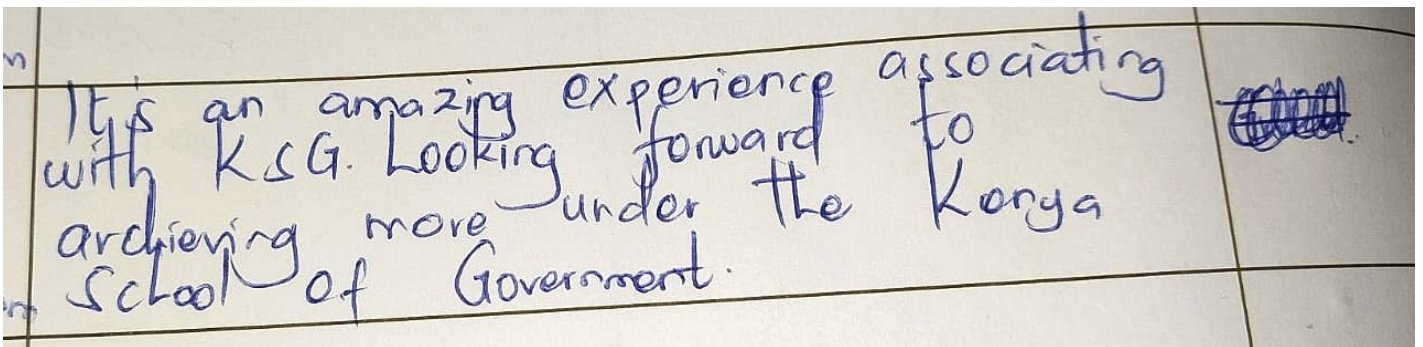 It's an amazing experience associating
with KSG. Looking forward to
archieving more under the Kenya
School of Government.